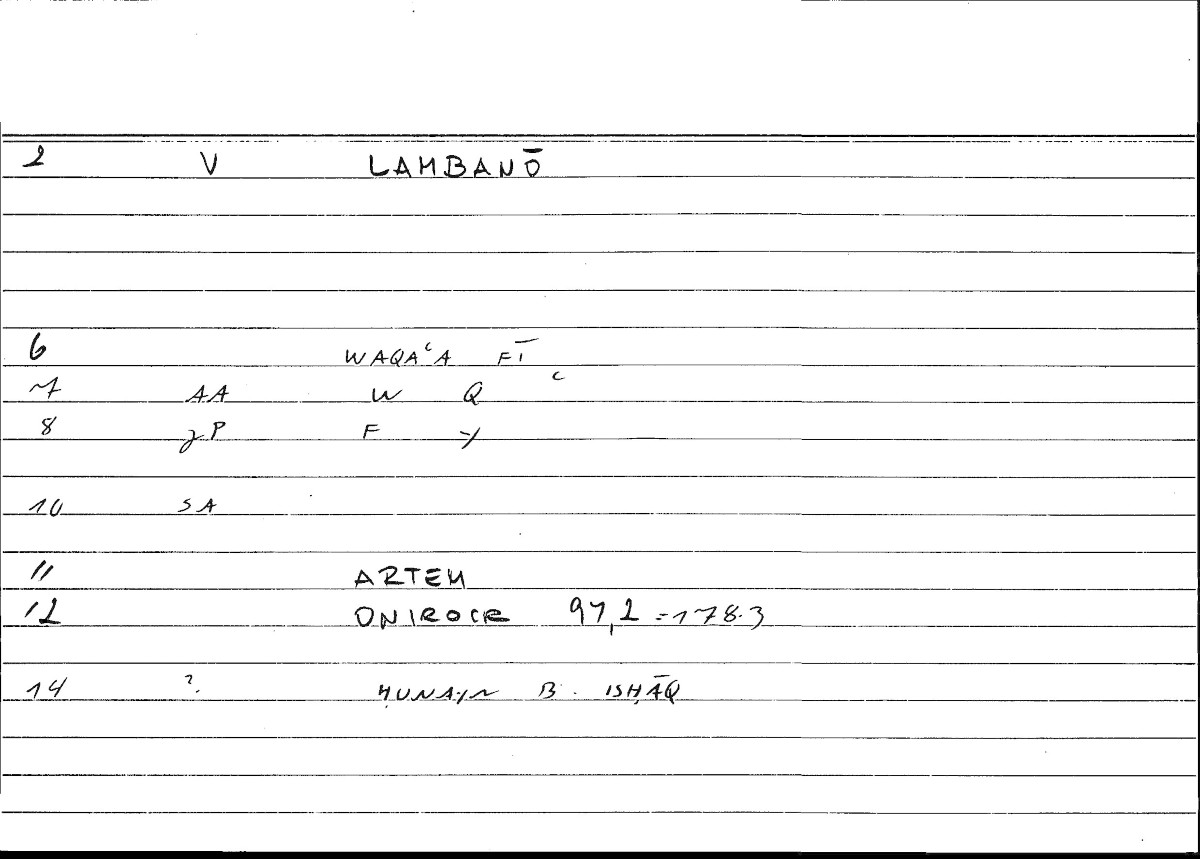 2 V LAMBANŌ
6 WAQAʿA FĪ
7 AA W Q ʿ
8 P F Y
10 SA
11 ARTEM
12 ONIROCR 97,2 = 178.3
14 ?. ḤUNAYN B. ISḤĀQ